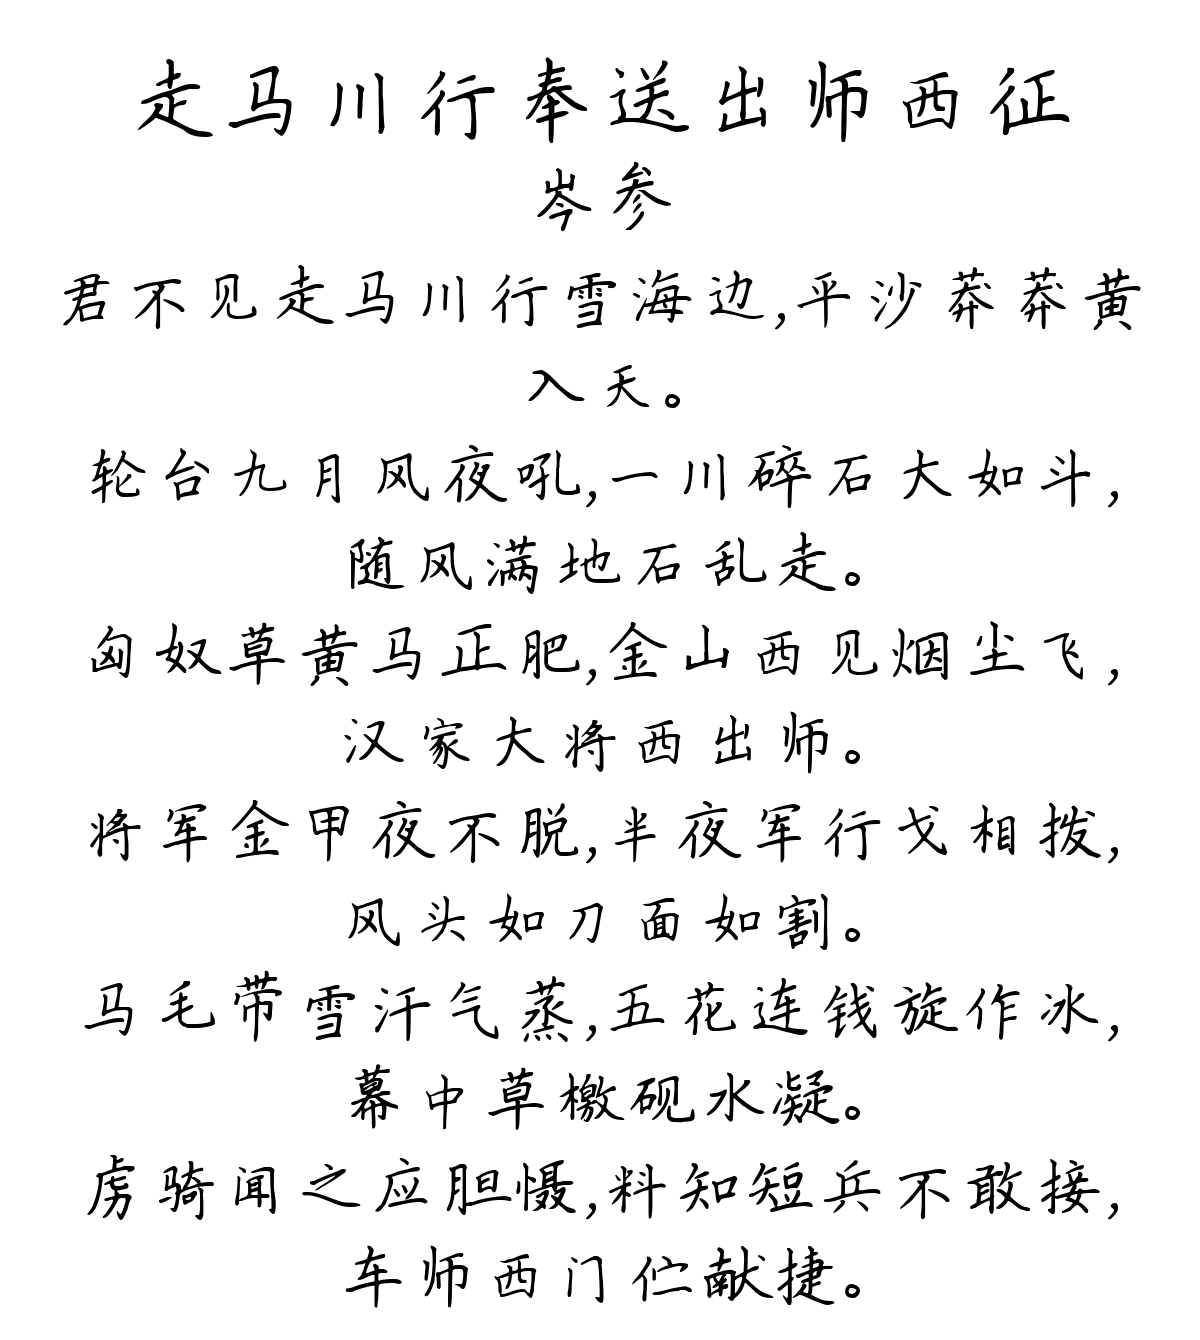 走马川行奉送出师西征
岑参
君不见走马川行雪海边,平沙莽莽黄
入天。
轮台九月风夜吼,一川碎石大如斗,
随风满地石乱走。
匈奴草黄马正肥,金山西见烟尘飞,
汉家大将西出师。
将军金甲夜不脱,半夜军行戈相拨,
风头如刀面如割。
马毛带雪汗气蒸,五花连钱旋作冰,
幕中草檄砚水凝。
虏骑闻之应胆慑,料知短兵不敢接,
车师西门伫献捷。